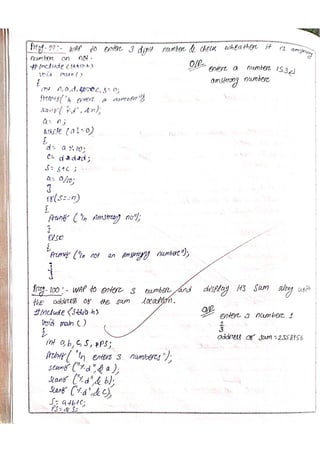 Prog-99:- WAP to enter 3 digit number & check wheather it is amstrong
number or not.
#include<stdio.h>
O/P
void main()
enter a number 153
{
amstrong number
int n,a,d, c, s=0;
printf("\n enter a number");
scanf("%d",&n);
a=n;
while(a!=0)
{
d= a%10;
c= d*d*d;
s= s+c;
a= a/10;
}
if(s==n)
{
printf("\n Amstrong no");
}
else
{
printf("\n not an Amstrong number");
}
}
Prog-100:- WAP to enter 3 number and display its sum along with
the address of the sum location.
#include<stdio.h>
O/P
void main()
enter 3 number 1
{
2
3
int a,b,c,s,*ps;
address of sum=2358956
printf("\n enter 3 numbers");
scanf("%d",&a);
scanf("%d",&b);
scanf("%d",&c);
s= a+b+c;
ps=&s;